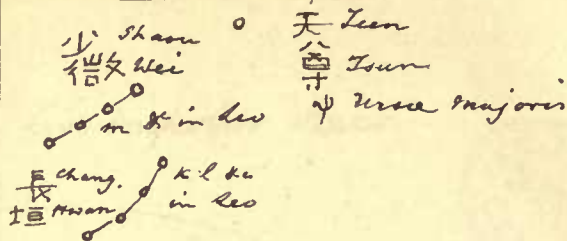 少 Shaou
微 Wei
m &c in Leo
長 Chang.
垣 Hwan
k l &c
in Leo
天 Teen
尊 Tsun
ψ Ursae Majoris